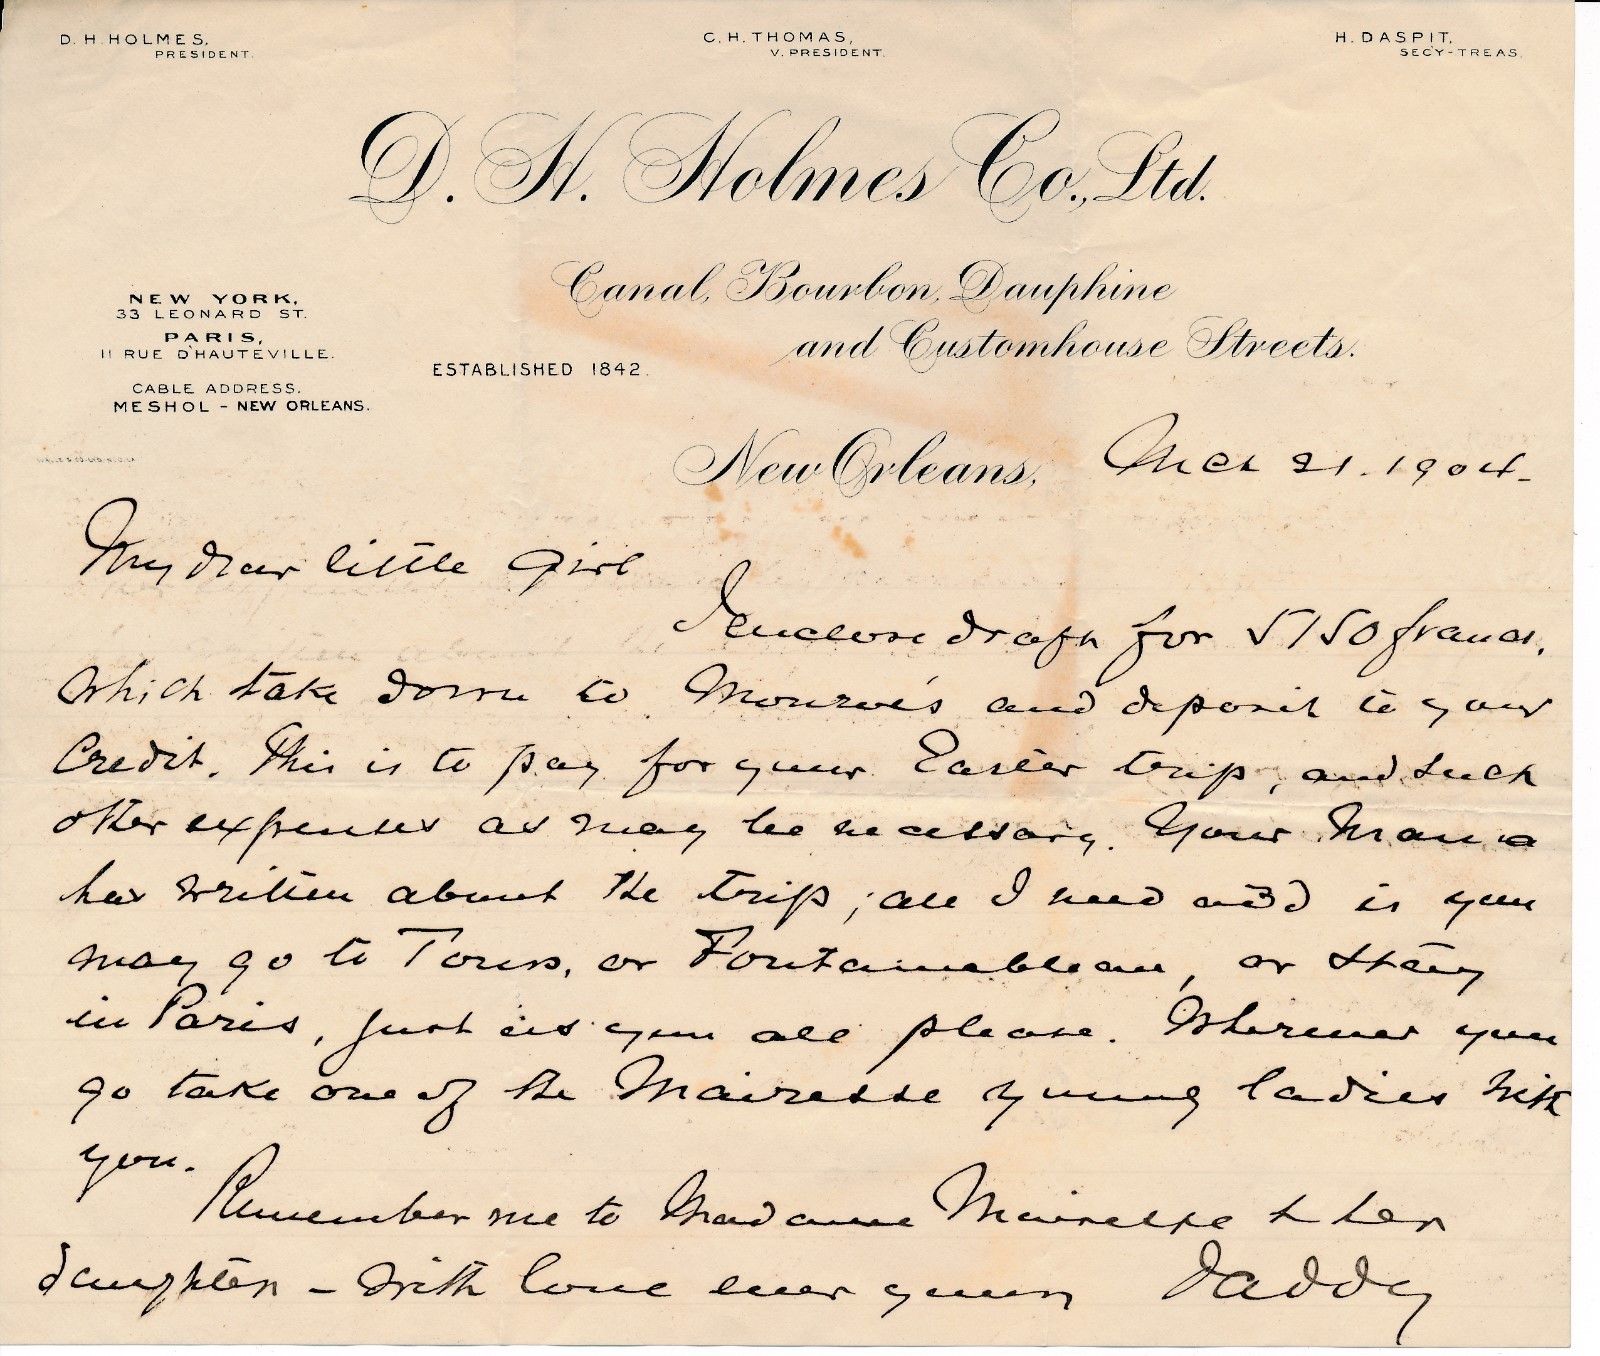 D. H. HOLMES,
PRESIDENT.
C. H. THOMAS,
V. PRESIDENT.
H. DASPIT,
SECY-TREAS.
D. H. Holmes Co., Ltd.
Canal, Bourbon, Dauphine
and Customhouse Streets.
NEW YORK,
33 LEONARD ST.
PARIS,
11 RUE D'HAUTEVILLE.
CABLE ADDRESS.
MESHOL - NEW ORLEANS.
ESTABLISHED 1842.
New Orleans, Mch 21. 1904.
My dear little Girl
I enclose draft for 5150 francs.
which take down to and deposit to your
Credit. This is to pay for your Easter trip, and such
other expenses as may be necessary. Your Mama
has written about the trip; all I need add is you
may go to Tours, or Fontainebleau, or stay
in Paris, just as you all please. Wherever you
go take one of the Mairesse young ladies with
you.
Remember me to Madame Mairesse & her
daughters - With love ever yours Daddy